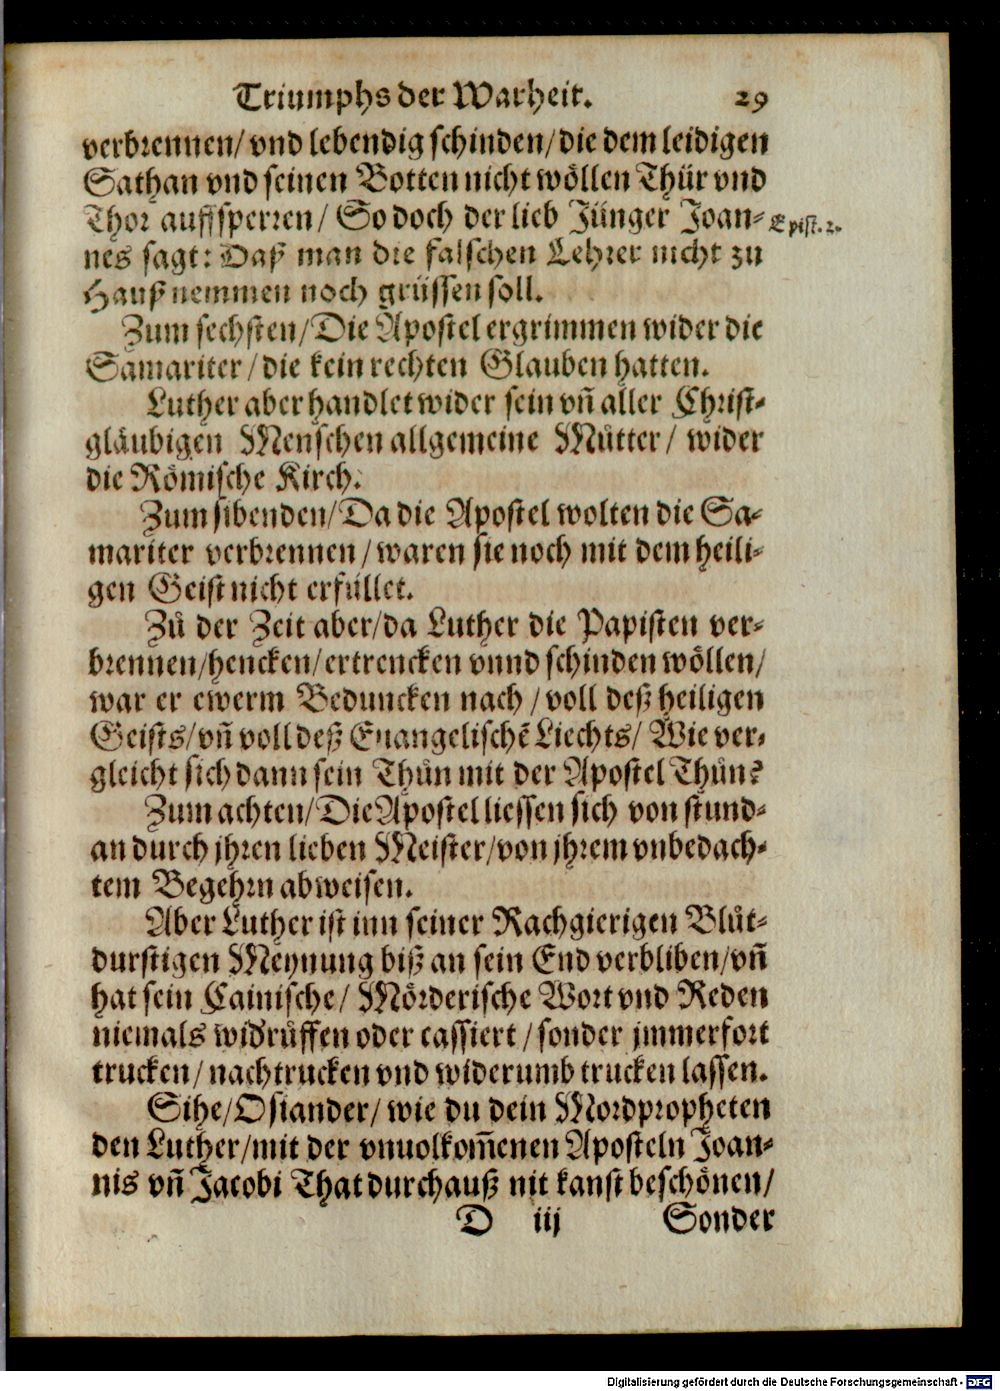 Triumphs der Warheit. 29
verbrennen/ vnd lebendig schinden/ die dem leidigen
Sathan vnd seinen Botten nicht wöllen Thür vnd
Thor auffsperren/ So doch der lieb Jünger Joan-
Epist. 2.
nes sagt: Daß man die falschen Lehrer nicht zu
Hauß nemmen noch grüssen soll.
Zum sechsten/ Die Apostel ergrimmen wider die
Samariter/ die kein rechten Glauben hatten.
Luther aber handlet wider sein vñ aller Christ-
gläubigen Menschen allgemeine Můtter/ wider
die Römische Kirch.
Zum sibenden/ Da die Apostel wolten die Sa-
mariter verbrennen/ waren sie noch mit dem heili-
gen Geist nicht erfüllet.
Zů der Zeit aber/ da Luther die Papisten ver-
brennen/ hencken/ ertrencken vnnd schinden wöllen/
war er ewerm Beduncken nach/ voll deß heiligen
Geists/ vñ voll deß Euangelischẽ Liechts/ Wie ver-
gleicht sich dann sein Thůn mit der Apostel Thůn?
Zum achten/ Die Apostel liessen sich von stund-
an durch jhren lieben Meister/ von jhrem vnbedach-
tem Begehrn abweisen.
Aber Luther ist inn seiner Rachgierigen Blůt-
durstigen Meynung biß an sein End verbliben/ vñ
hat sein Cainische/ Mörderische Wort vnd Reden
niemals widrůffen oder cassiert/ sonder jmmerfort
trucken/ nachtrucken vnd widerumb trucken lassen.
Sihe/ Osiander/ wie du dein Mordpropheten
den Luther/ mit der vnuolkom̃enen Aposteln Joan-
nis vñ Jacobi That durchauß nit kanst beschönen/
D iij Sonder
Digitalisierung gefördert durch die Deutsche Forschungsgemeinschaft - DFG